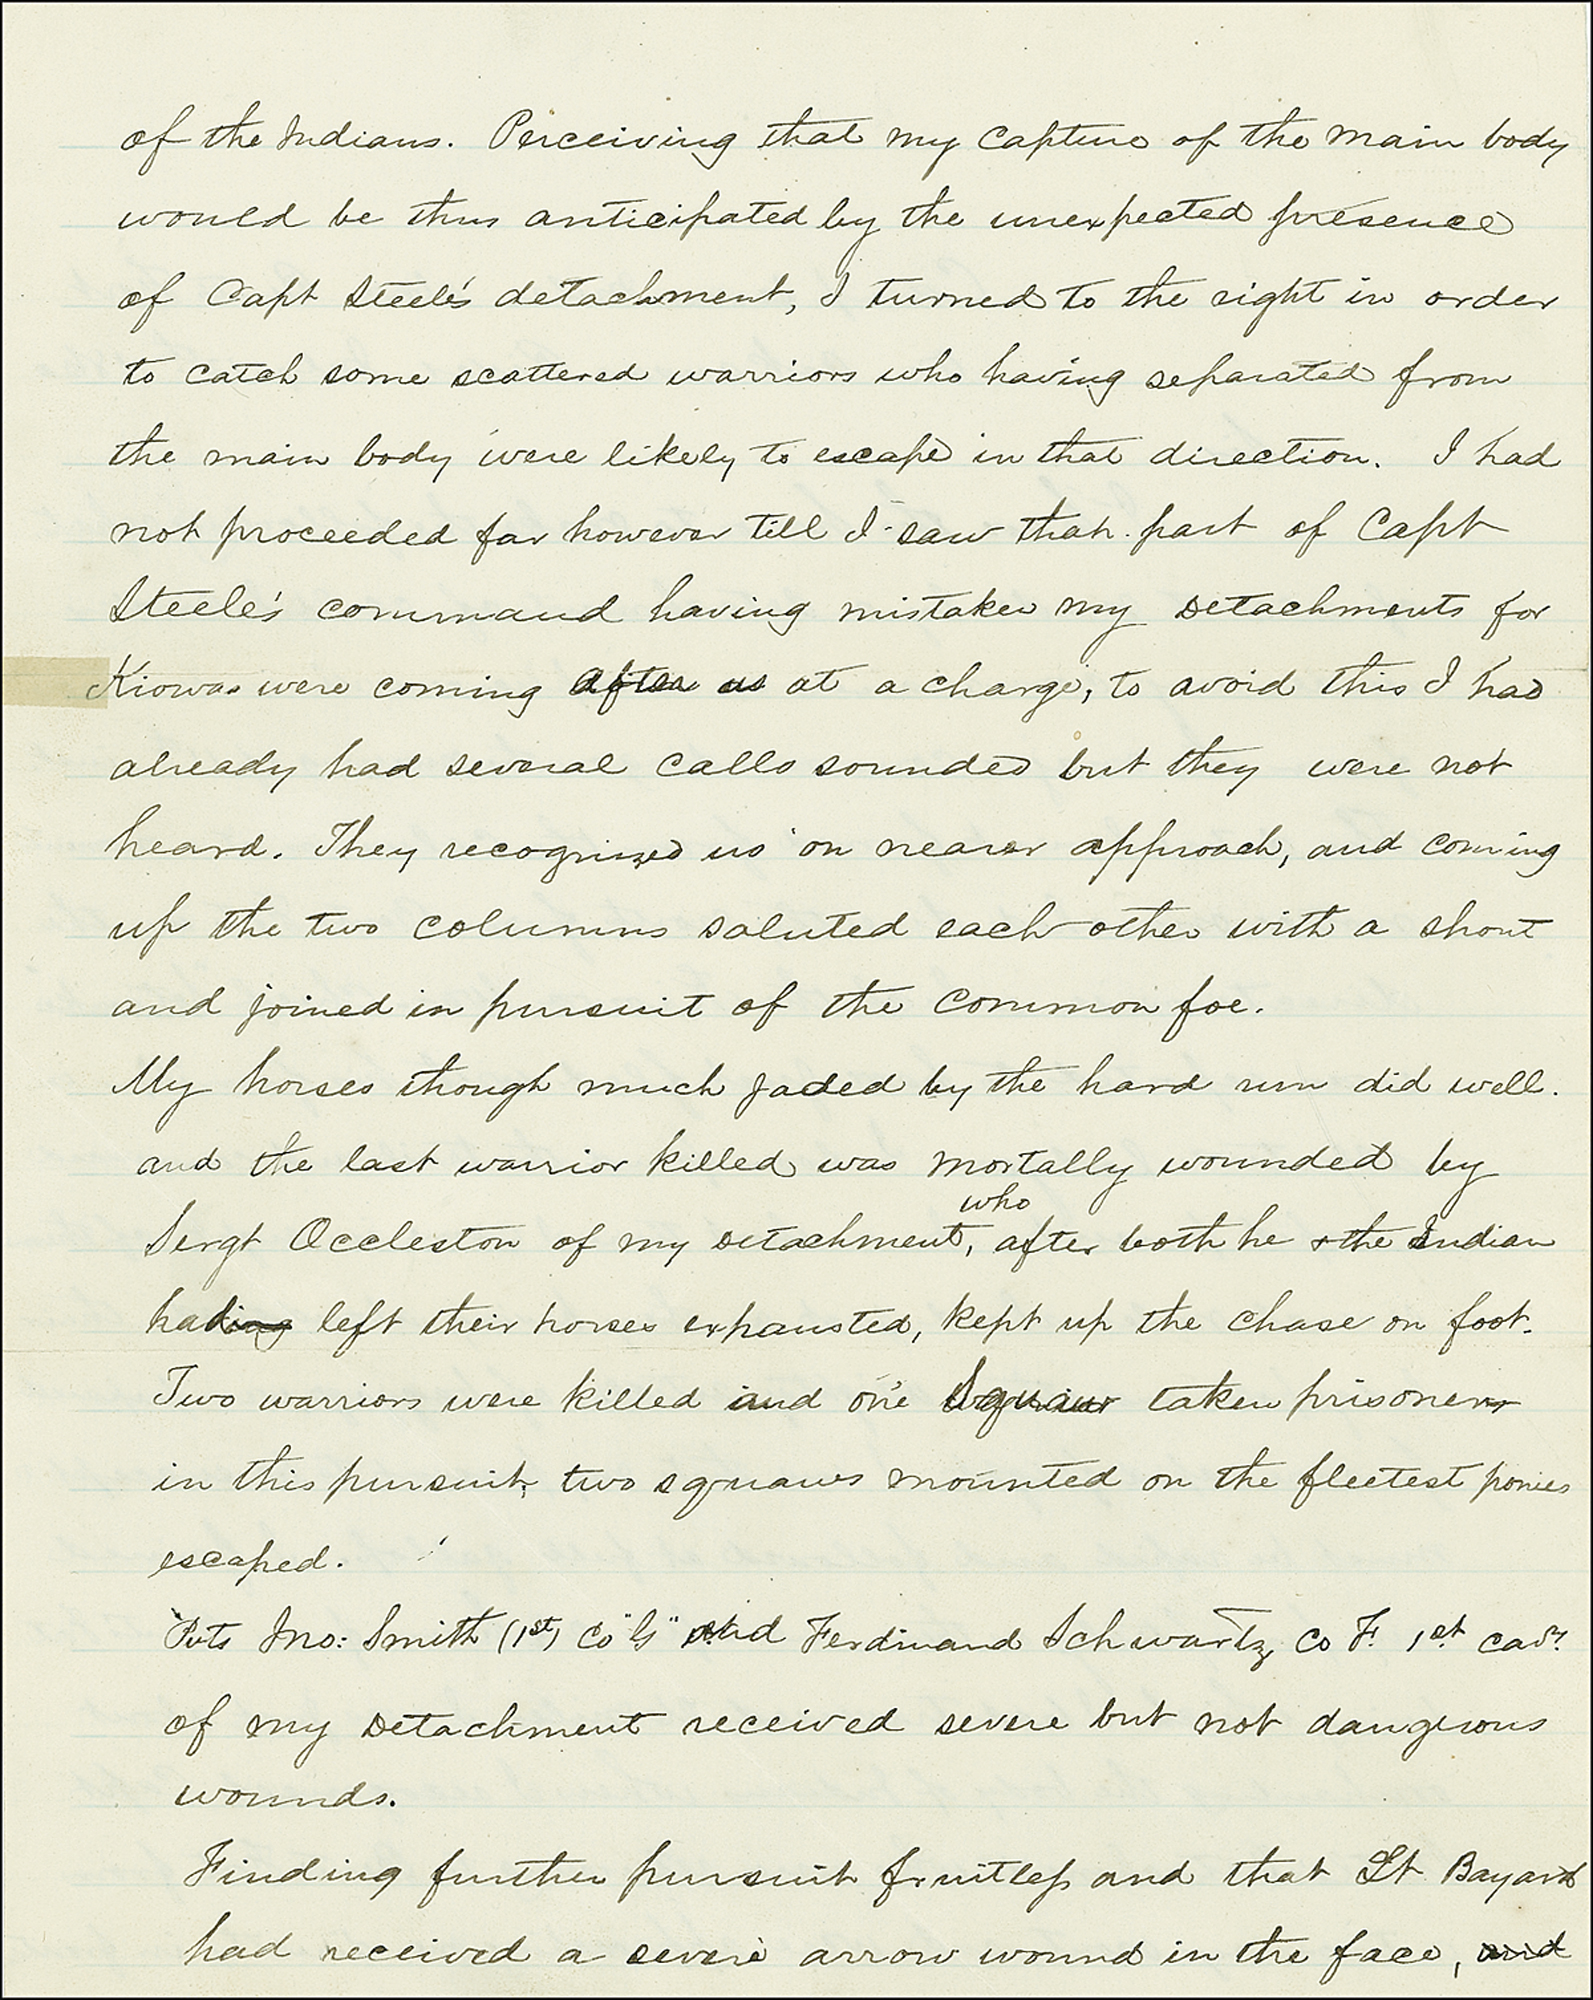 of the Indians. Perceiving that my capture of the main body
would be thus anticipated by the unexpected presence
of Capt Steele's detachment, I turned to the right in order
to catch some scattered warriors who having separated from
the main body were likely to escape in that direction. I had
not proceeded far however till I saw that part of Capt
Steele's command having mistaken my detachments for
Kiowas were coming after us at a charge, to avoid this I had
already had several calls sounded but they were not
heard. They recognized us on nearer approach, and coming
up the two columns saluted each other with a shout
and joined in pursuit of the common foe.
My horses though much jaded by the hard run did well.
and the last warrior killed was mortally wounded by
who
Sergt Occleston of my detachment, after both he & the Indian
hading left their horses exhausted, kept up the chase on foot.
Two warriors were killed and one Squaw taken prisoners
in this pursuit, two squaws mounted on the fleetest ponies
escaped.
Pvts Jno: Smith (1st) Co "G" and Ferdinand Schwartz, Co F. 1st cavy.
of my detachment received severe but not dangerous
wounds.
Finding further pursuit fruitless and that Lt Bayard
had received a severe arrow wound in the face, and